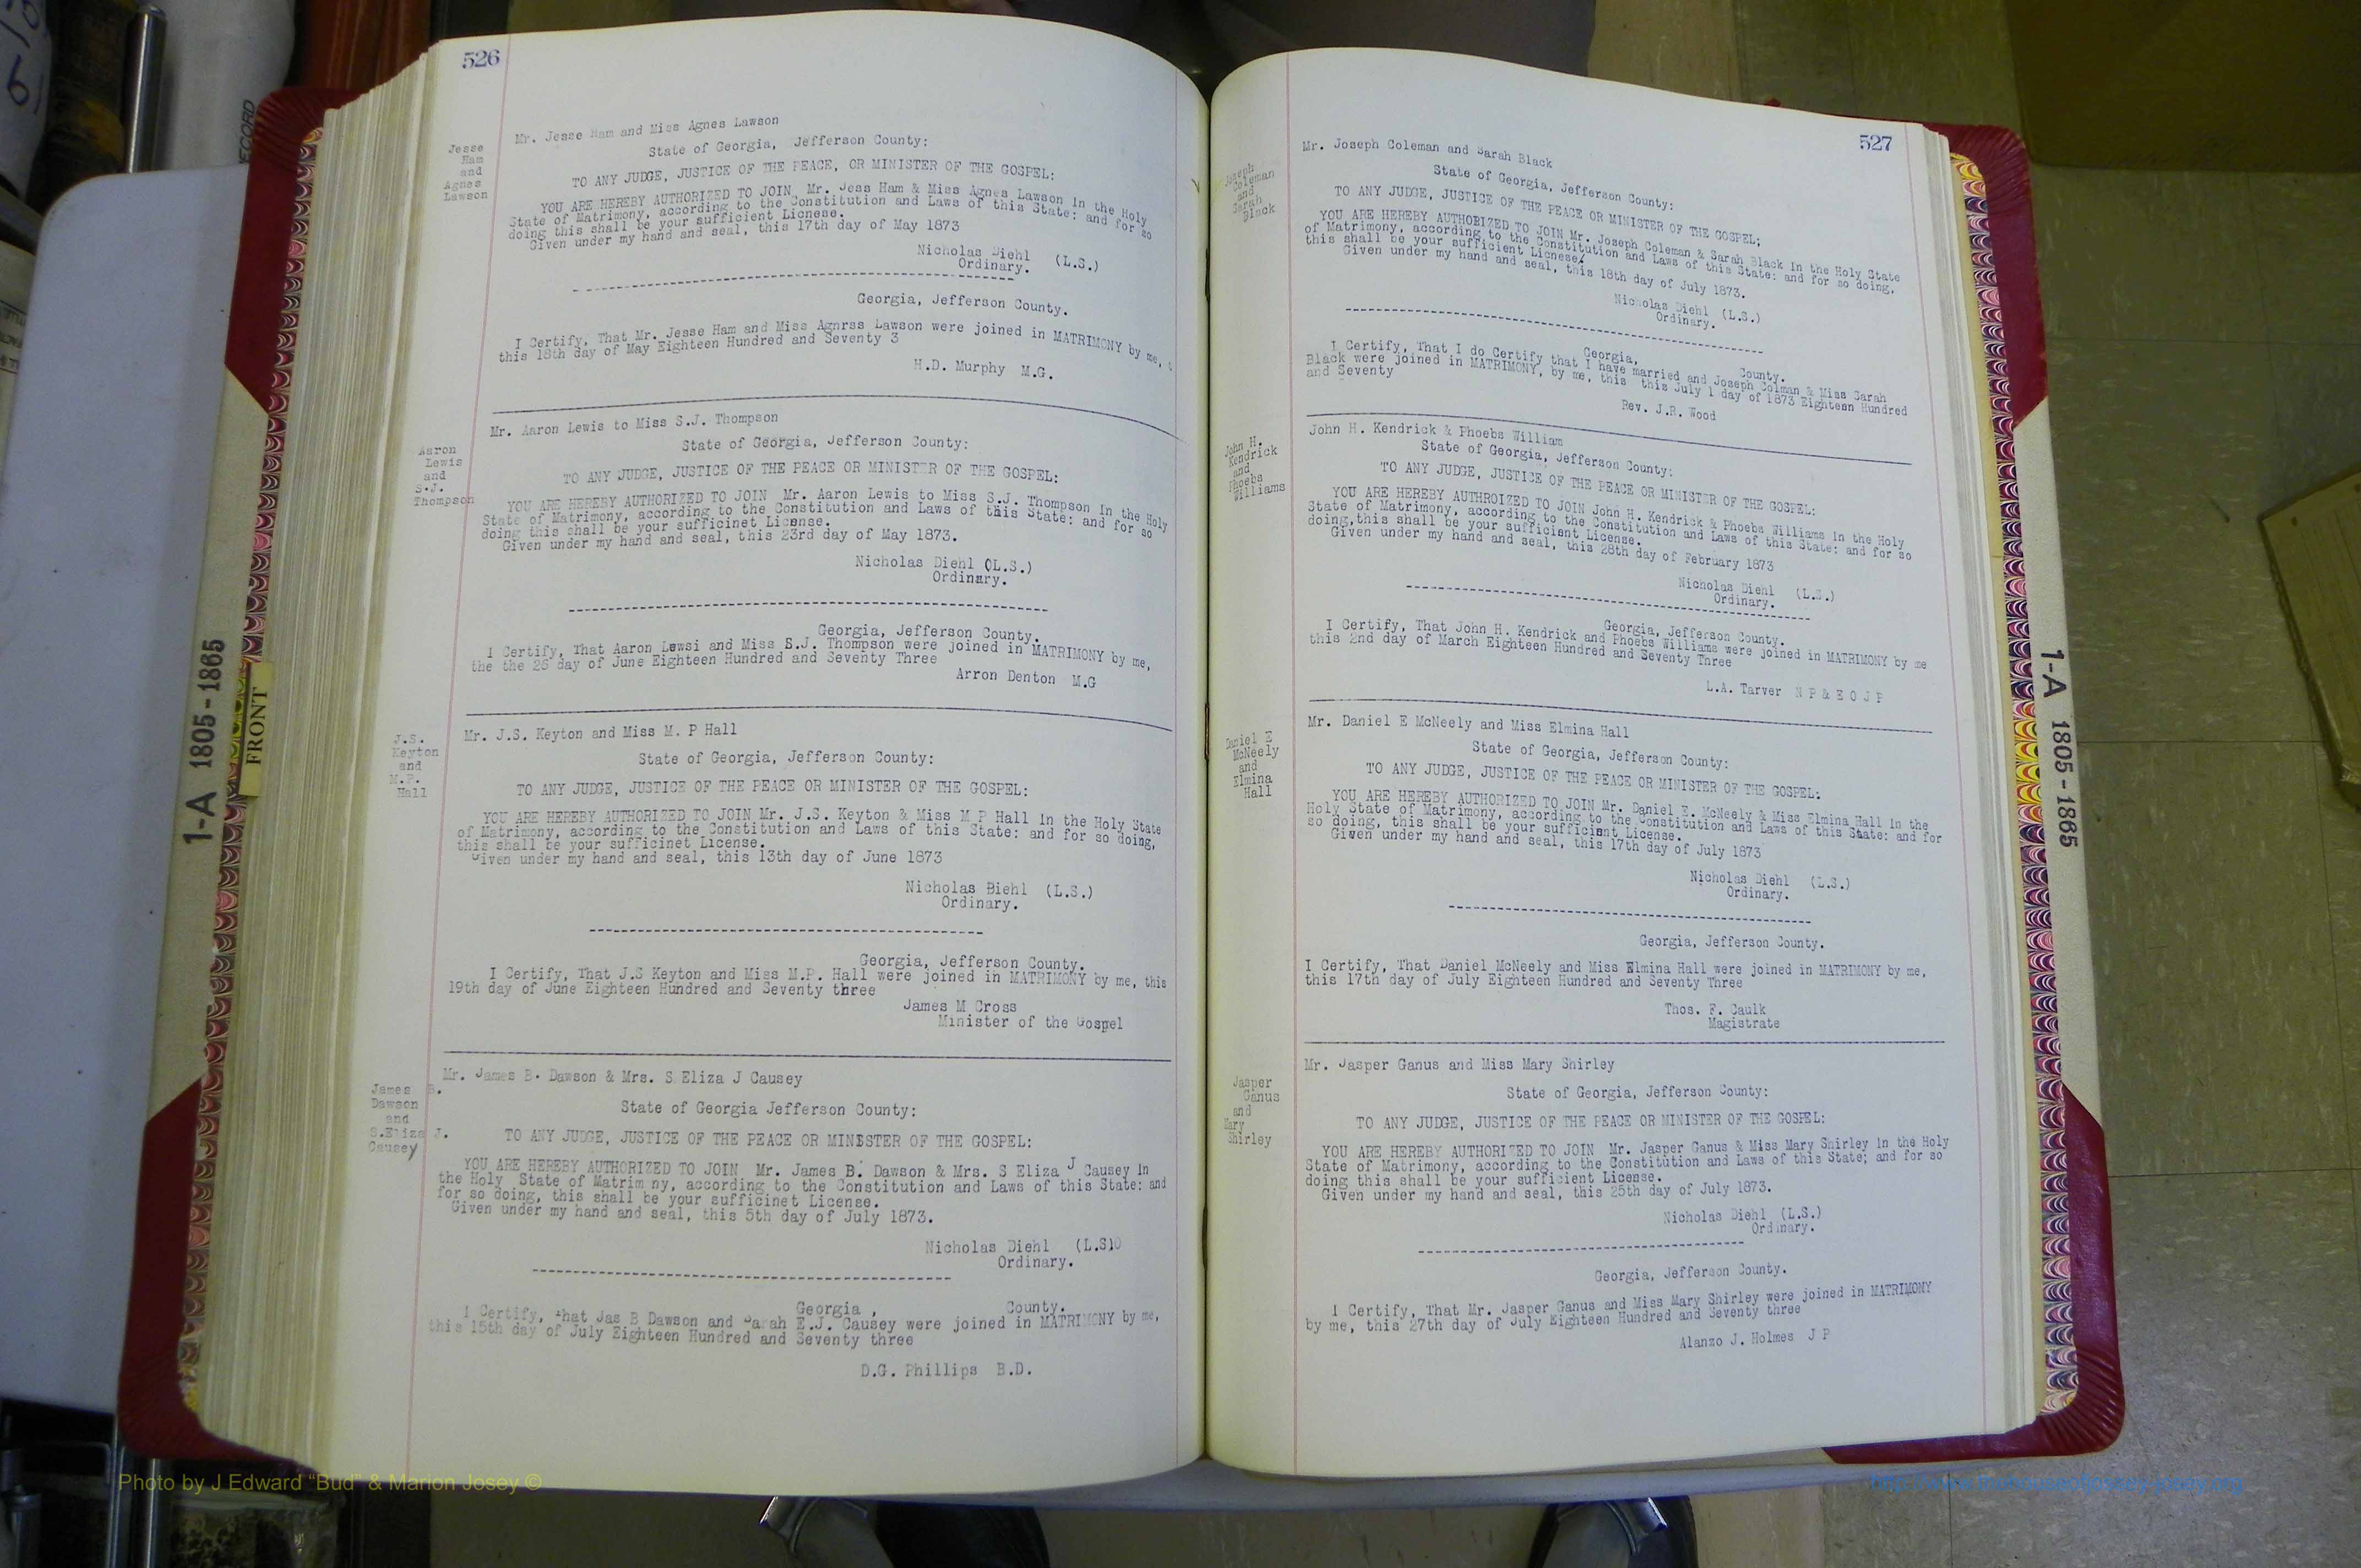 526
Mr. Jesse Ham and Miss Agnes Lawson
Jesse
Ham
and
Agnes
Lawson
State of Georgia, Jefferson County:
TO ANY JUDGE, JUSTICE OF THE PEACE, OR MINISTER OF THE GOSPEL:
YOU ARE HEREBY AUTHORIZED TO JOIN Mr. Jess Ham & Miss Agnes Lawson in the Holy
State of Matrimony, according to the Constitution and Laws of this State: and for so
doing this shall be your sufficient Licnese.
Given under my hand and seal, this 17th day of May 1873
Nicholas Diehl (L.S.)
Ordinary.
Georgia, Jefferson County.
I Certify, That Mr. Jesse Ham and Miss Agnrss Lawson were joined in MATRIMONY by me,
this 18th day of May Eighteen Hundred and Seventy 3
H.D. Murphy M.G.
Mr. Aaron Lewis to Miss S.J. Thompson
Aaron
Lewis
and
S.J.
Thompson
State of Georgia, Jefferson County:
TO ANY JUDGE, JUSTICE OF THE PEACE OR MINISTER OF THE GOSPEL:
YOU ARE HEREBY AUTHORIZED TO JOIN Mr. Aaron Lewis to Miss S.J. Thompson in the Holy
State of Matrimony, according to the Constitution and Laws of this State: and for so
doing this shall be your sufficinet License.
Given under my hand and seal, this 23rd day of May 1873.
Nicholas Diehl (L.S.)
Ordinary.
Georgia, Jefferson County.
I Certify, That Aaron Lewsi and Miss S.J. Thompson were joined in MATRIMONY by me,
the the 26 day of June Eighteen Hundred and Seventy Three
Arron Denton M.G
Mr. J.S. Keyton and Miss M. P Hall
J.S.
Keyton
and
M.P.
Hall
State of Georgia, Jefferson County:
TO ANY JUDGE, JUSTICE OF THE PEACE OR MINISTER OF THE GOSPEL:
YOU ARE HEREBY AUTHORIZED TO JOIN Mr. J.S. Keyton & Miss M P Hall in the Holy State
of Matrimony, according to the Constitution and Laws of this State: and for so doing,
this shall be your sufficinet License.
Given under my hand and seal, this 13th day of June 1873
Nicholas Biehl (L.S.)
Ordinary.
Georgia, Jefferson County.
I Certify, That J.S Keyton and Miss M.P. Hall were joined in MATRIMONY by me, this
19th day of June Eighteen Hundred and Seventy three
James M Cross
Minister of the Gospel
Mr. James B. Dawson & Mrs. S Eliza J Causey
James B.
Dawson
and
S.Eliza J.
Causey
State of Georgia Jefferson County:
TO ANY JUDGE, JUSTICE OF THE PEACE OR MINISTER OF THE GOSPEL:
YOU ARE HEREBY AUTHORIZED TO JOIN Mr. James B. Dawson & Mrs. S Eliza J Causey in
the Holy State of Matrim ny, according to the Constitution and Laws of this State: and
for so doing, this shall be your sufficinet License.
Given under my hand and seal, this 5th day of July 1873.
Nicholas Diehl (L.S)0
Ordinary.
Georgia , County.
I Certify, That Jas B Dawson and Sarah E.J. Causey were joined in MATRIMONY by me,
this 15th day of July Eighteen Hundred and Seventy three
D.G. Phillips B.D.
527
Mr. Joseph Coleman and Sarah Black
Joseph
Coleman
and
Sarah
Black
State of Georgia, Jefferson County:
TO ANY JUDGE, JUSTICE OF THE PEACE OR MINISTER OF THE GOSPEL;
YOU ARE HEREBY AUTHORIZED TO JOIN Mr. Joseph Coleman & Sarah Black in the Holy State
of Matrimony, according to the Constitution and Laws of this State: and for so doing,
this shall be your sufficient Licnese.
Given under my hand and seal, this 18th day of July 1873.
Nicholas Diehl (L.S.)
Ordinary.
Georgia, County.
I Certify, That I do Certify that I have married and Joseph Colman & Miss Sarah
Black were joined in MATRIMONY, by me, this this July 1 day of 1873 Eighteen Hundred
and Seventy
Rev. J.R. Wood
John H. Kendrick & Phoebs William
John H.
Kendrick
and
Phoebs
Williams
State of Georgia, Jefferson County:
TO ANY JUDGE, JUSTICE OF THE PEACE OR MINISTER OF THE GOSPEL:
YOU ARE HEREBY AUTHROIZED TO JOIN John H. Kendrick & Phoebs Williams in the Holy
State of Matrimony, according to the Constitution and Laws of this State: and for so
doing,this shall be your sufficient License.
Given under my hand and seal, this 28th day of February 1873
Nicholas Diehl (L.S.)
Ordinary.
Georgia, Jefferson County.
I Certify, That John H. Kendrick and Phoebs Williams were joined in MATRIMONY by me
this 2nd day of March Eighteen Hundred and Seventy Three
L.A. Tarver N P & E O J P
Mr. Daniel E McNeely and Miss Elmina Hall
Daniel E
McNeely
and
Elmina
Hall
State of Georgia, Jefferson County:
TO ANY JUDGE, JUSTICE OF THE PEACE OR MINISTER OF THE GOSPEL:
YOU ARE HEREBY AUTHORIZED TO JOIN Mr. Daniel E. McNeely & Miss Elmina Hall in the
Holy State of Matrimony, according to the Constitution and Laws of this State: and for
so doing, this shall be your sufficient License.
Given under my hand and seal, this 17th day of July 1873
Nicholas Diehl (L.S.)
Ordinary.
Georgia, Jefferson County.
I Certify, That Daniel McNeely and Miss Elmina Hall were joined in MATRIMONY by me,
this 17th day of July Eighteen Hundred and Seventy Three
Thos. F. Caulk
Magistrate
Mr. Jasper Ganus and Miss Mary Shirley
Jasper
Ganus
and
Mary
Shirley
State of Georgia, Jefferson County:
TO ANY JUDGE, JUSTICE OF THE PEACE OR MINISTER OF THE GOSPEL:
YOU ARE HEREBY AUTHORIZED TO JOIN Mr. Jasper Ganus & Miss Mary Shirley in the Holy
State of Matrimony, according to the Constitution and Laws of this State; and for so
doing this shall be your sufficient License.
Given under my hand and seal, this 25th day of July 1873.
Nicholas Diehl (L.S.)
Ordinary.
Georgia, Jefferson County.
I Certify, That Mr. Jasper Ganus and Miss Mary Shirley were joined in MATRIMONY
by me, this 27th day of July Eighteen Hundred and Seventy three
Alanzo J. Holmes J P
1-A 1805-1865
FRONT
1-A 1805-1865
Photo by J Edward “Bud” & Marion Josey ©
http://www.thehouseofjossey-josey.org